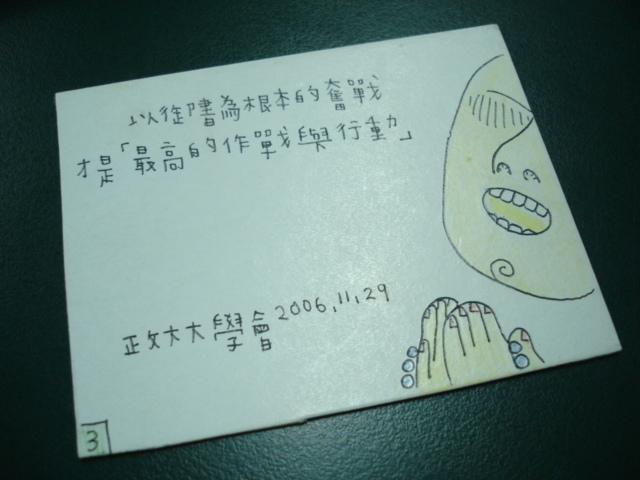 以御書為根本的奮戰
才是「最高的作戰與行動」
政大大學會 2006.11.29
3